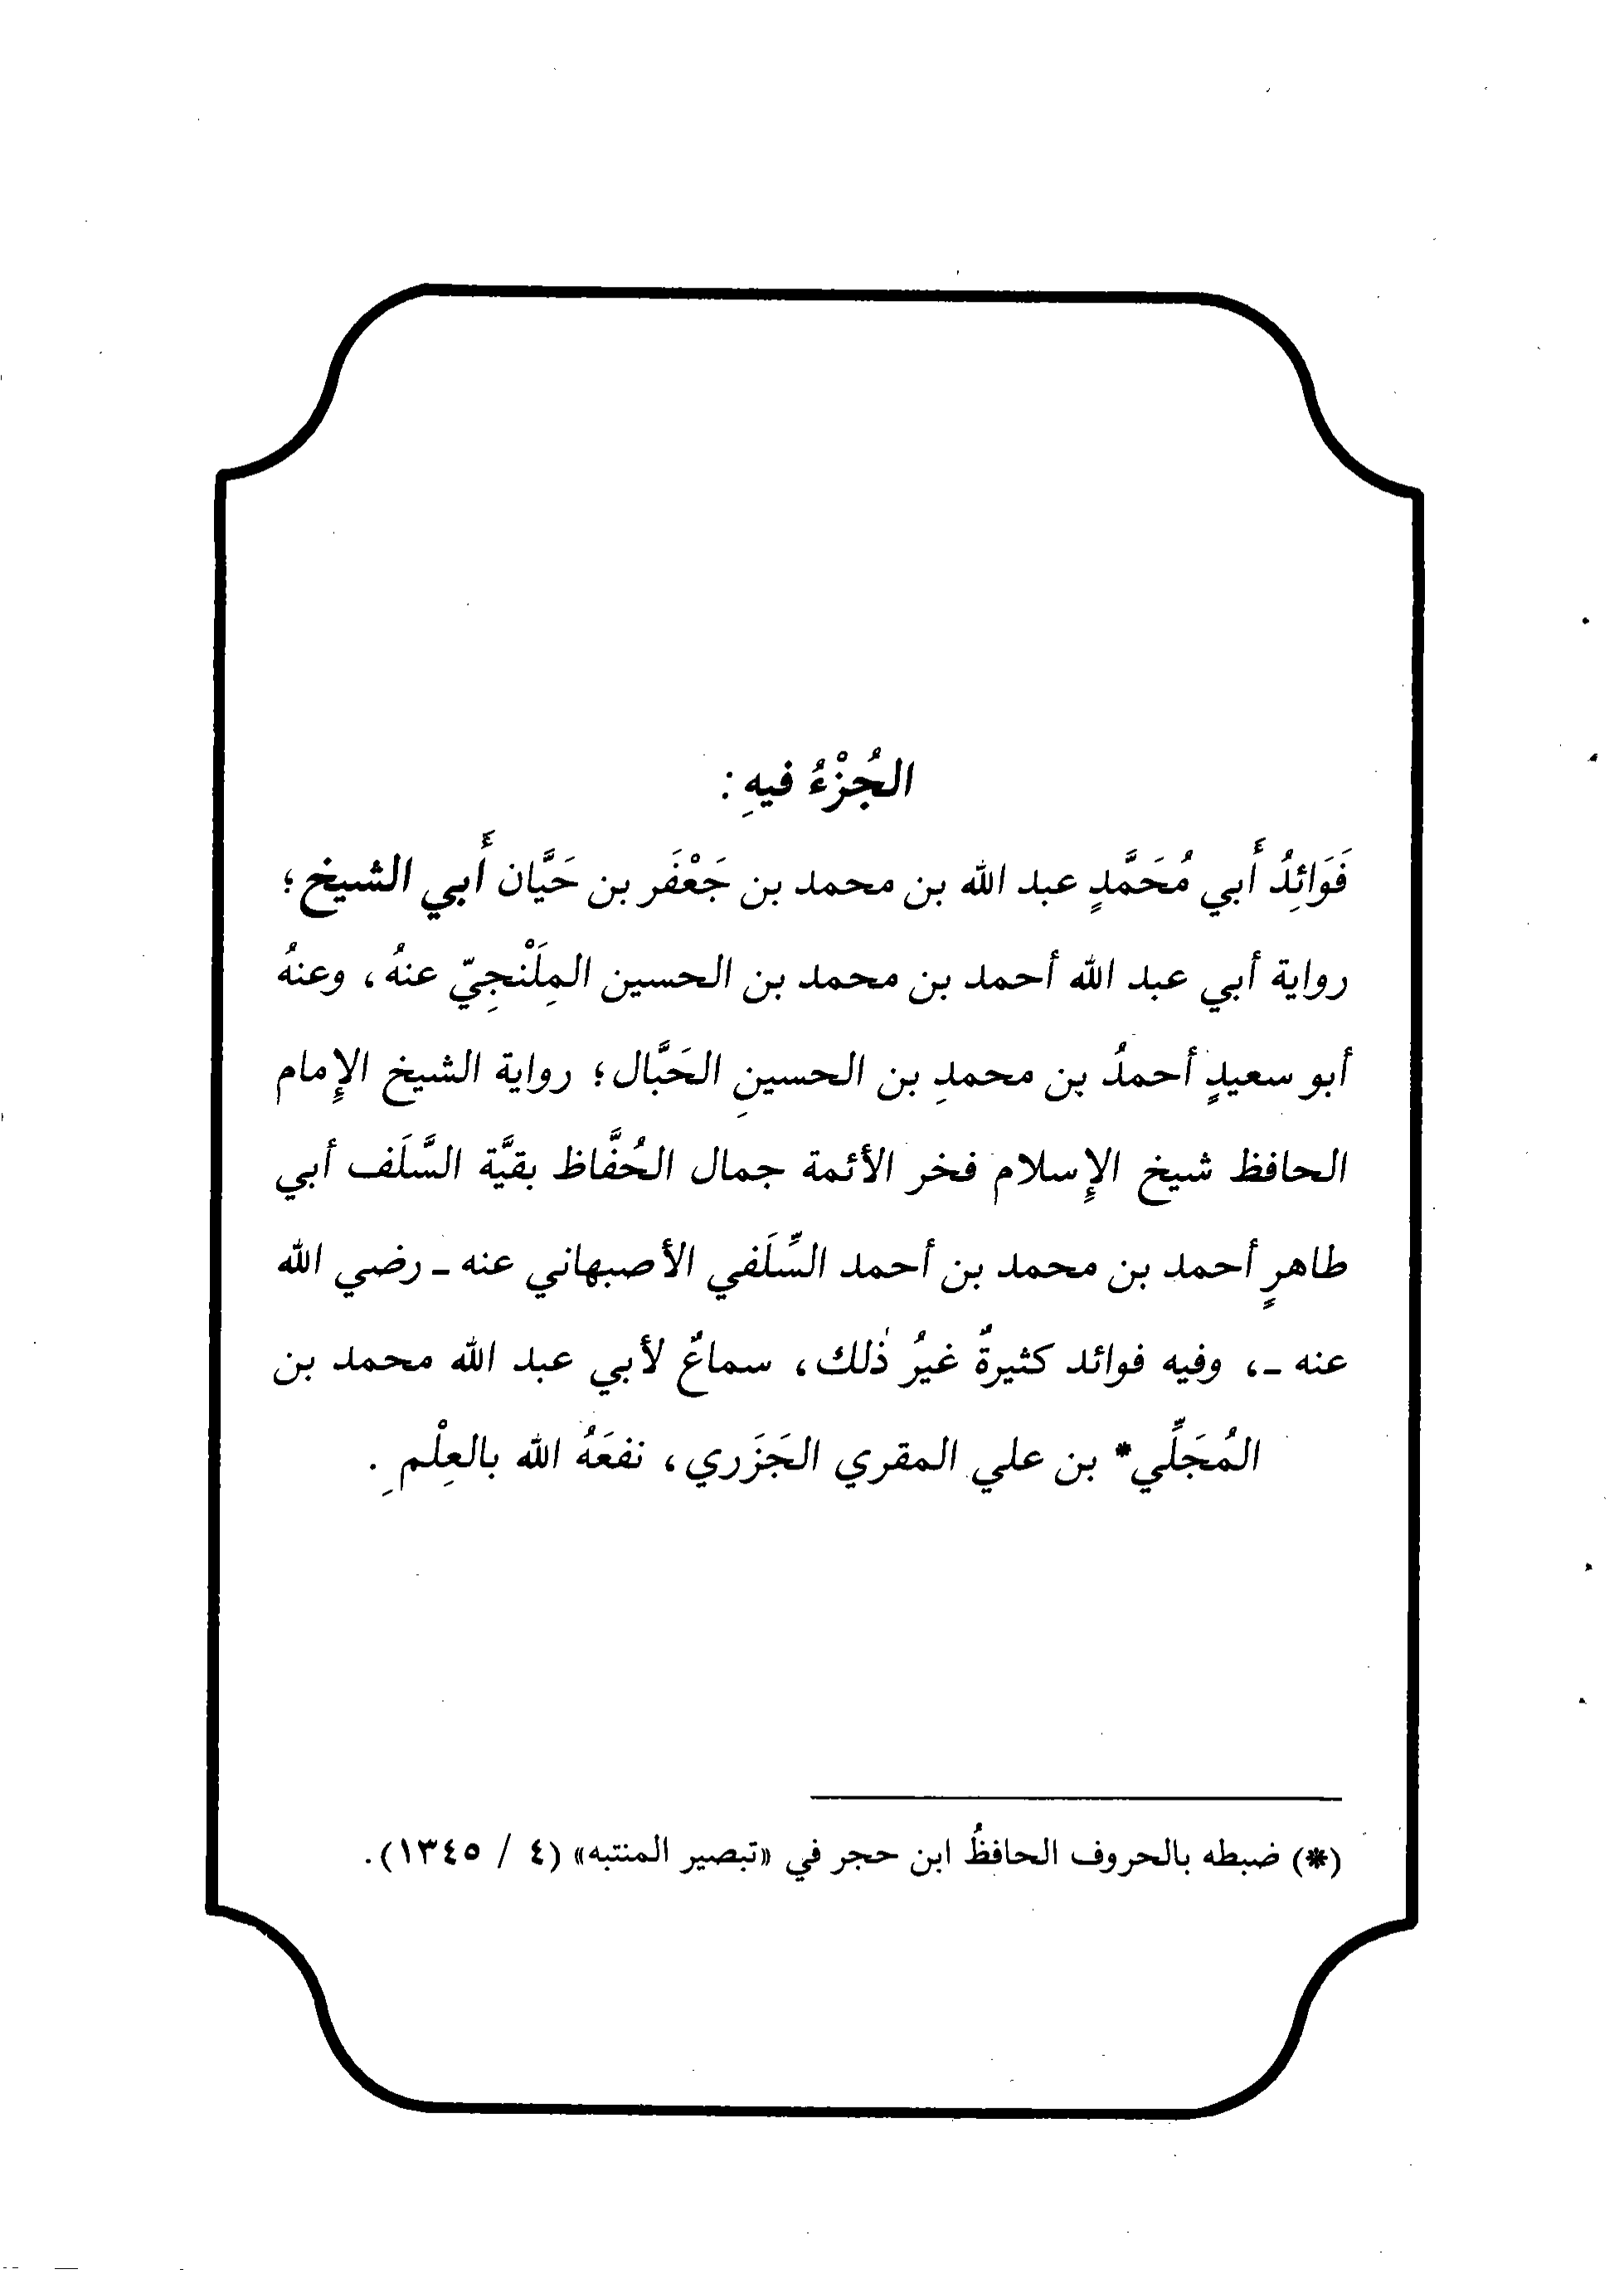 الجُزْءُ فيهِ:
فَوَائِدُ أَبي مُحَمَّدٍ عبد الله بن محمد بن جَعْفَر بن حَيَّان أَبي الشيخ؛
رواية أبي عبد الله أحمد بن محمد بن الحسين المِلَنْجِيّ عنهُ، وعنهُ
أبو سعيدٍ أحمدُ بن محمدِ بن الحسينِ الحَبَّال؛ رواية الشيخ الإمام
الحافظ شيخ الإسلام فخر الأئمة جمال الحُفَّاظ بقيَّة السَّلَف أبي
طاهرٍ أحمد بن محمد بن أحمد السِّلَفي الأصبهاني عنه ـ رضي الله
عنه ـ، وفيه فوائد كثيرةٌ غيرُ ذٰلك، سماعٌ لأبي عبد الله محمد بن
المُجَلِّي* بن علي المقري الجَزَري، نفعَهُ الله بالعِلْمِ.
(*) ضبطه بالحروف الحافظُ ابن حجر في «تبصير المنتبه» (٤ / ١٣٤٥).